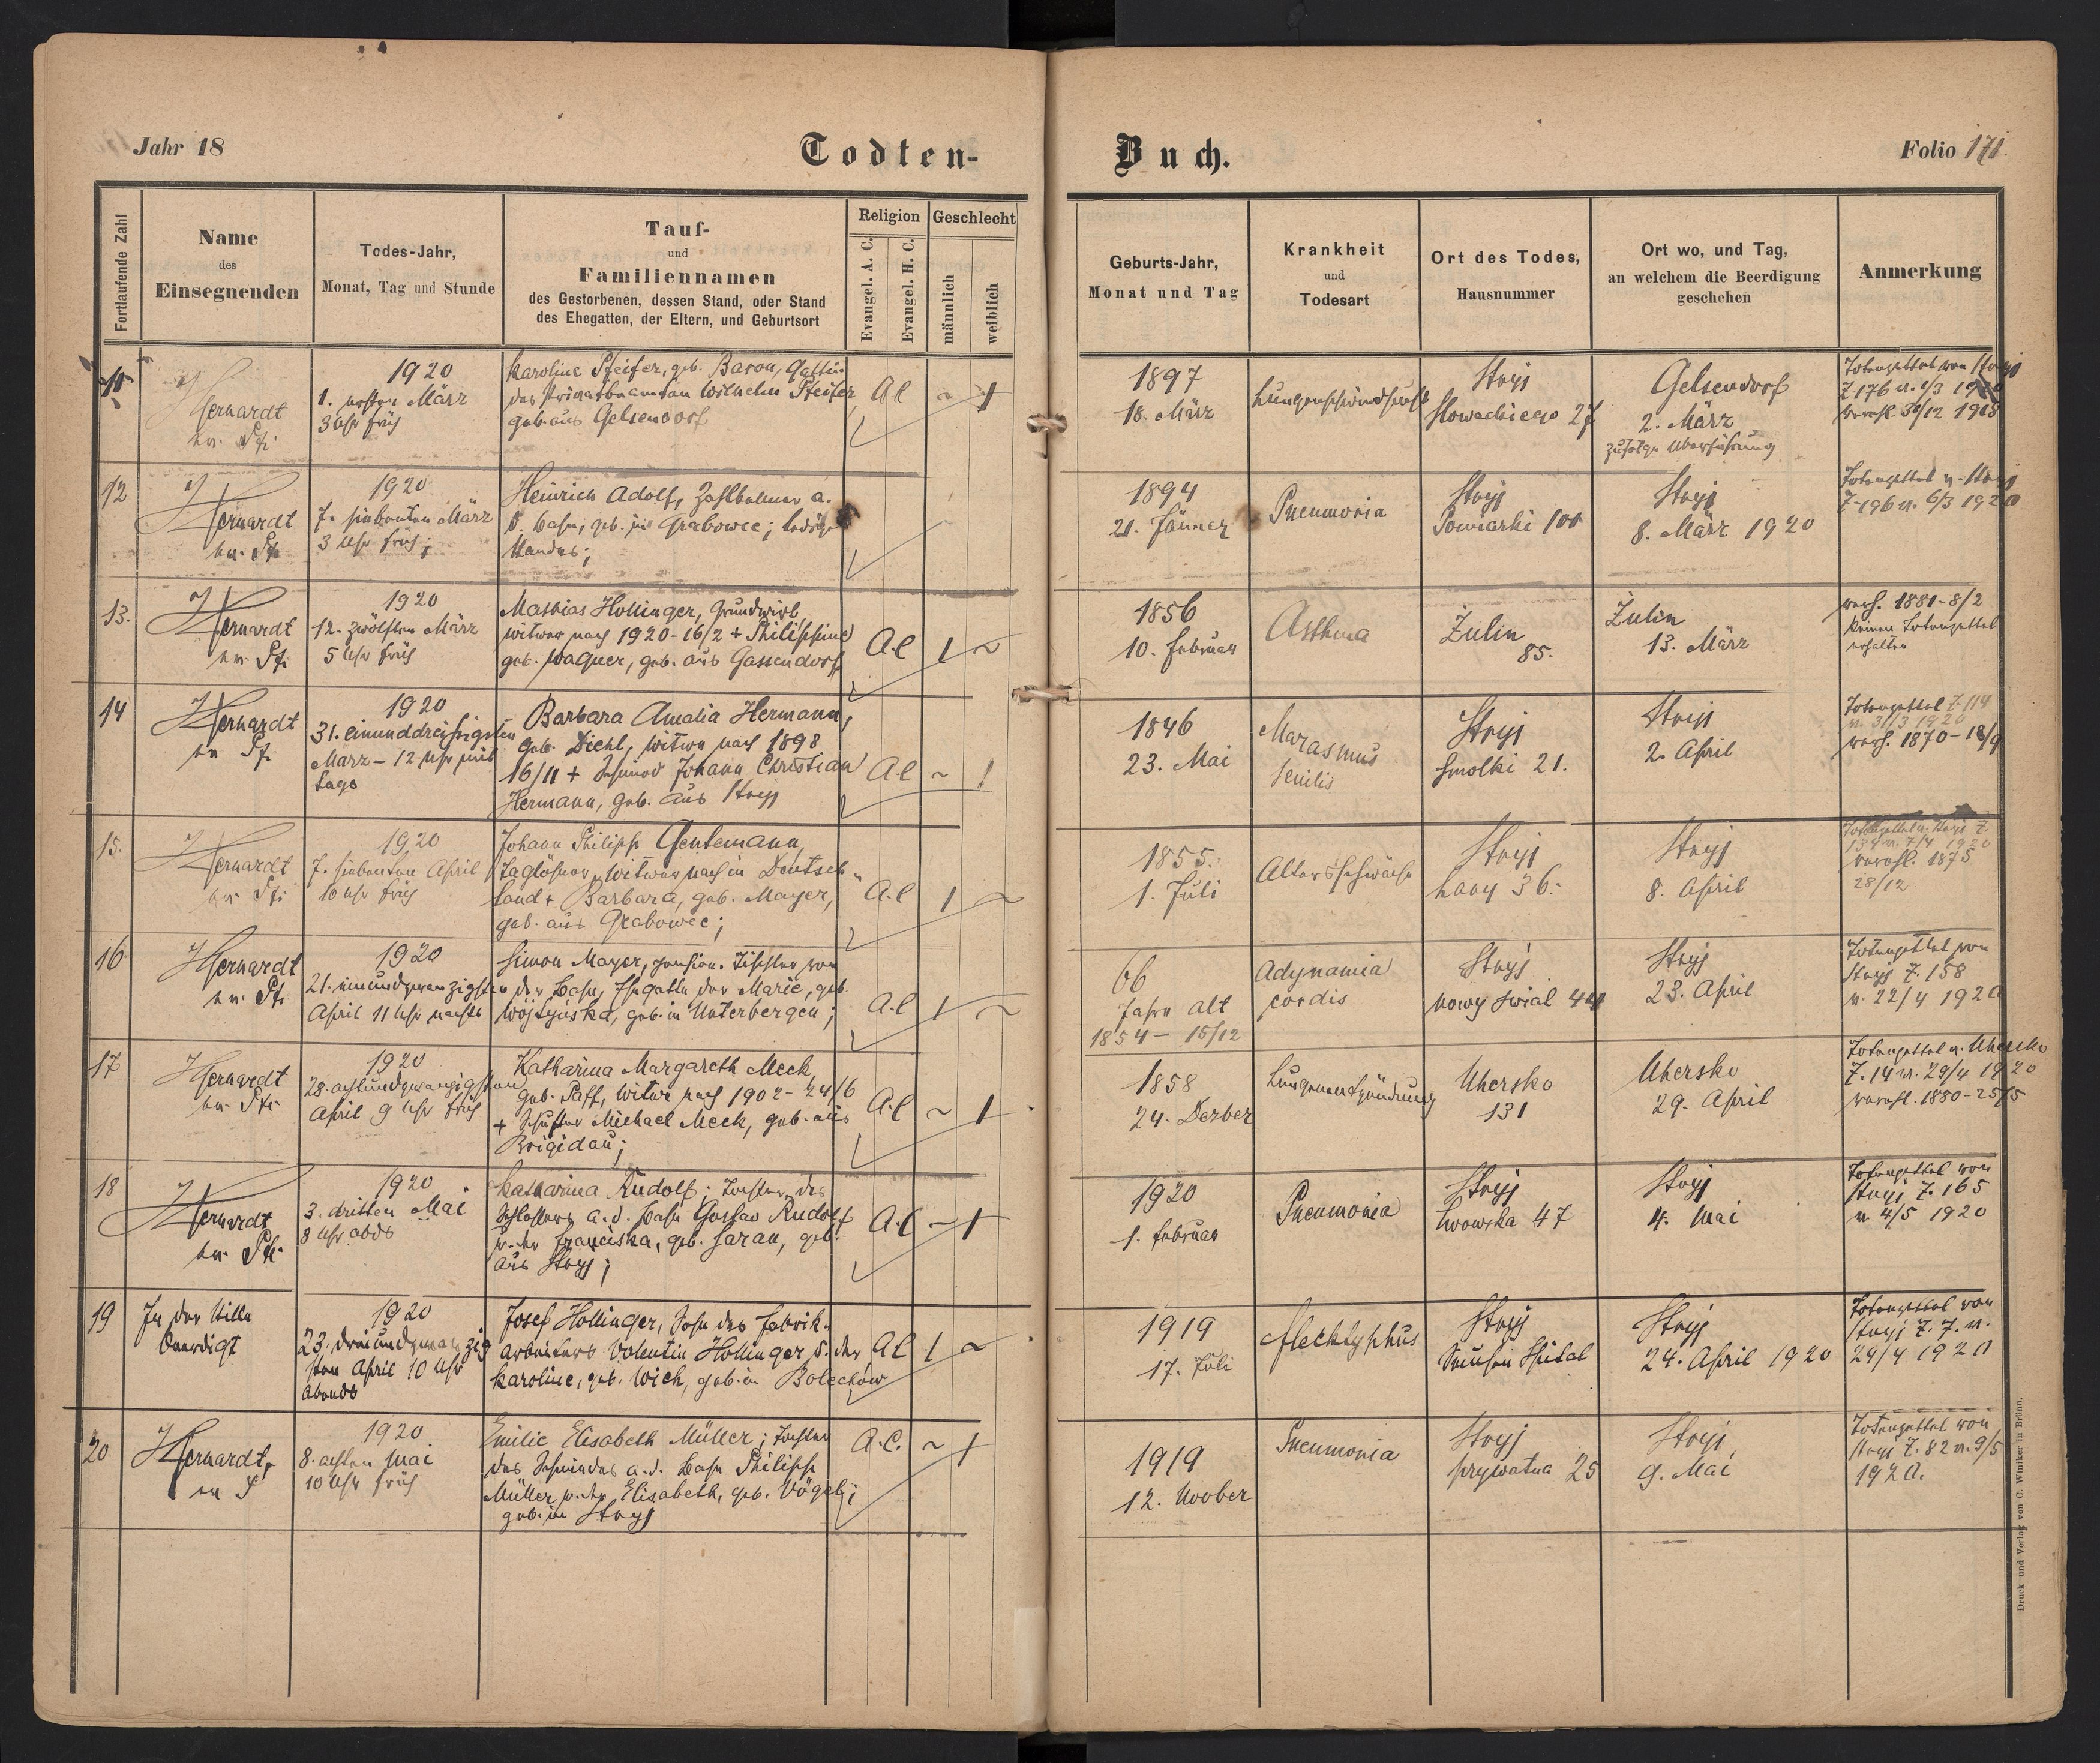 Jahr 18
Todten-
Buch.
Folio 171.
Fortlaufende Zahl
Name
des
Einsegnenden
Todes-Jahr,
Monat, Tag und Stunde
Tauf-
und
Familiennamen
des Gestorbenen, dessen Stand, oder Stand
des Ehegatten, der Eltern, und Geburtsort
Religion
Evangel. A. C.
Evangel. H. C.
Geschlecht
männlich
weiblich
Geburts-Jahr,
Monat und Tag
Krankheit
und
Todesart
Ort des Todes,
Hausnummer
Ort wo, und Tag,
an welchem die Beerdigung
geschehen
Anmerkung
11
Hernardt
1920
1. ersten März
3 Uhr früh
Karoline Pfeifer, geb. Baron, Gattin
des Privatbeamten Wilhelm Pfeifer
geb. aus Gelsendorf
A.C
~
1
1897
18. März
Lungenschwindsucht
Stryj
Slowackiego 27
Gelsendorf
2. März
zufolge Überführung
Totenzettel von Stryj
Z 176 v. 1/3 1920
verehl. 30/12 1918
12
Hernardt
1920
7. siebenten März
3 Uhr früh;
Heinrich Adolf, Zahlkellner a.
d. Bahn, geb. in Grabowce; ledigen
Standes;
1894
21. Jänner
Pneumonia
Stryj
8. März 1920
Totenzettel v. Stryj
Z-196 v. 6/3 1920
13.
Hernardt
1920
12. zwölften März
5 Uhr früh
Mathias Hollinger, Grundwirt,
Witwer nach 1920-16/2 + Philippine
geb. Wagner, geb. aus Gassendorf
A.C
1
~
1856
10. Februar
Asthma
Zulin
85.
Zulin
13. März
verh. 1881-8/2
keinen Totenzettel
erhalten
14
Hernardt
1920
31. einunddreissigsten
März - 12 Uhr mit
tags
Barbara Amalia Hermann,
geb. Diehl, Witwe nach 1898
16/11 + Schmied Johann Christian
Hermann, geb. aus Stryj
A.C
~
1
1846
23. Mai
Marasmus
senilis
Stryj
Smolki 21.
Stryj
2. April
Totenzettel Z. 114
v. 31/3 1920
verh. 1870-18/9
15.
Hernardt
1920
7. siebenten April
10 Uhr früh
Johann Philipp Gentemann,
Taglöhner, Witwer nach in Deutsch
land + Barbara, geb. Mayer,
geb. aus Grabowce;
A.C
1
~
1855.
1. Juli
Altersschwäche
Stryj
Lany 36.
Stryj
8. April
verehl. 1875
28/12
16
Hernardt
1920
21. einundzwanzigsten
April 11 Uhr nachts
Simon Mayer, pension. Tischler von
der Bahn, Ehegatte der Marie, geb.
geb. in Unterbergen;
A.C
1
~
66
Jahre alt
1854 - 15/12
Adynamia
cordis
Stryj
nowy swiat 44
Stryj
23. April
Totenzettel von
Stryj Z. 158
v. 22/4 1920
17
Hernardt
1920
28. achtundzwanzigsten
April 9 Uhr früh
Katharina Margareth Meck,
geb. Paff, Witwe nach 1902-24/6
+ Schuster Michael Meck, geb. aus
Brigidau;
A.C
~
1
1858
24. Dezber
Lungenentzündung
Uhersko
131
Uhersko
29. April
Totenzettel v. Uhersko
Z. 14 v. 29/4 1920
verehl. 1880-25/5
18
Hernardt
1920
3. dritten Mai
8 Uhr abds
Katharina Rudolf; Tochter des
Schlossers a. d. Bahn Gustav Rudolf
u. der Franciska, geb. Saran, geb.
aus Stryj;
A.C
~
1
1920
1. Februar
Pneumonia
Stryj
Lwowska 47
Stryj
4. Mai
Totenzettel von
Stryj Z. 165
v. 4/5 1920
19
In der Stille
beerdigt
1920
23. dreiundzwanzig
sten April 10 Uhr
Abends
Josef Hollinger, Sohn des Fabrik-
arbeiters Valentin Hollinger u. der
Karoline, geb. Wich, geb. in Bolechow
A.C
1
~
1919
17. Juli
Flecktyphus
Stryj
Seuchen Spital
Stryj
24. April 1920
Totenzettel von
Stryj Z. 7. v.
24/4 1920
20
Hernardt,
1920
8. achten Mai
10 Uhr früh
Emilie Elisabeth Müller; Tochter
des Schmiedes a. d. Bahn Philipp
Müller u. der Elisabeth, geb. Vögel;
geb. in Stryj
A.C.
~
1
1919
12. Novber
Pneumonia
Stryj
prywatna 25
Stryj,
9. Mai
Totenzettel von
Stryj Z. 82 v. 9/5
1920.
Druck und Verlag von C. Winiker in Brünn.